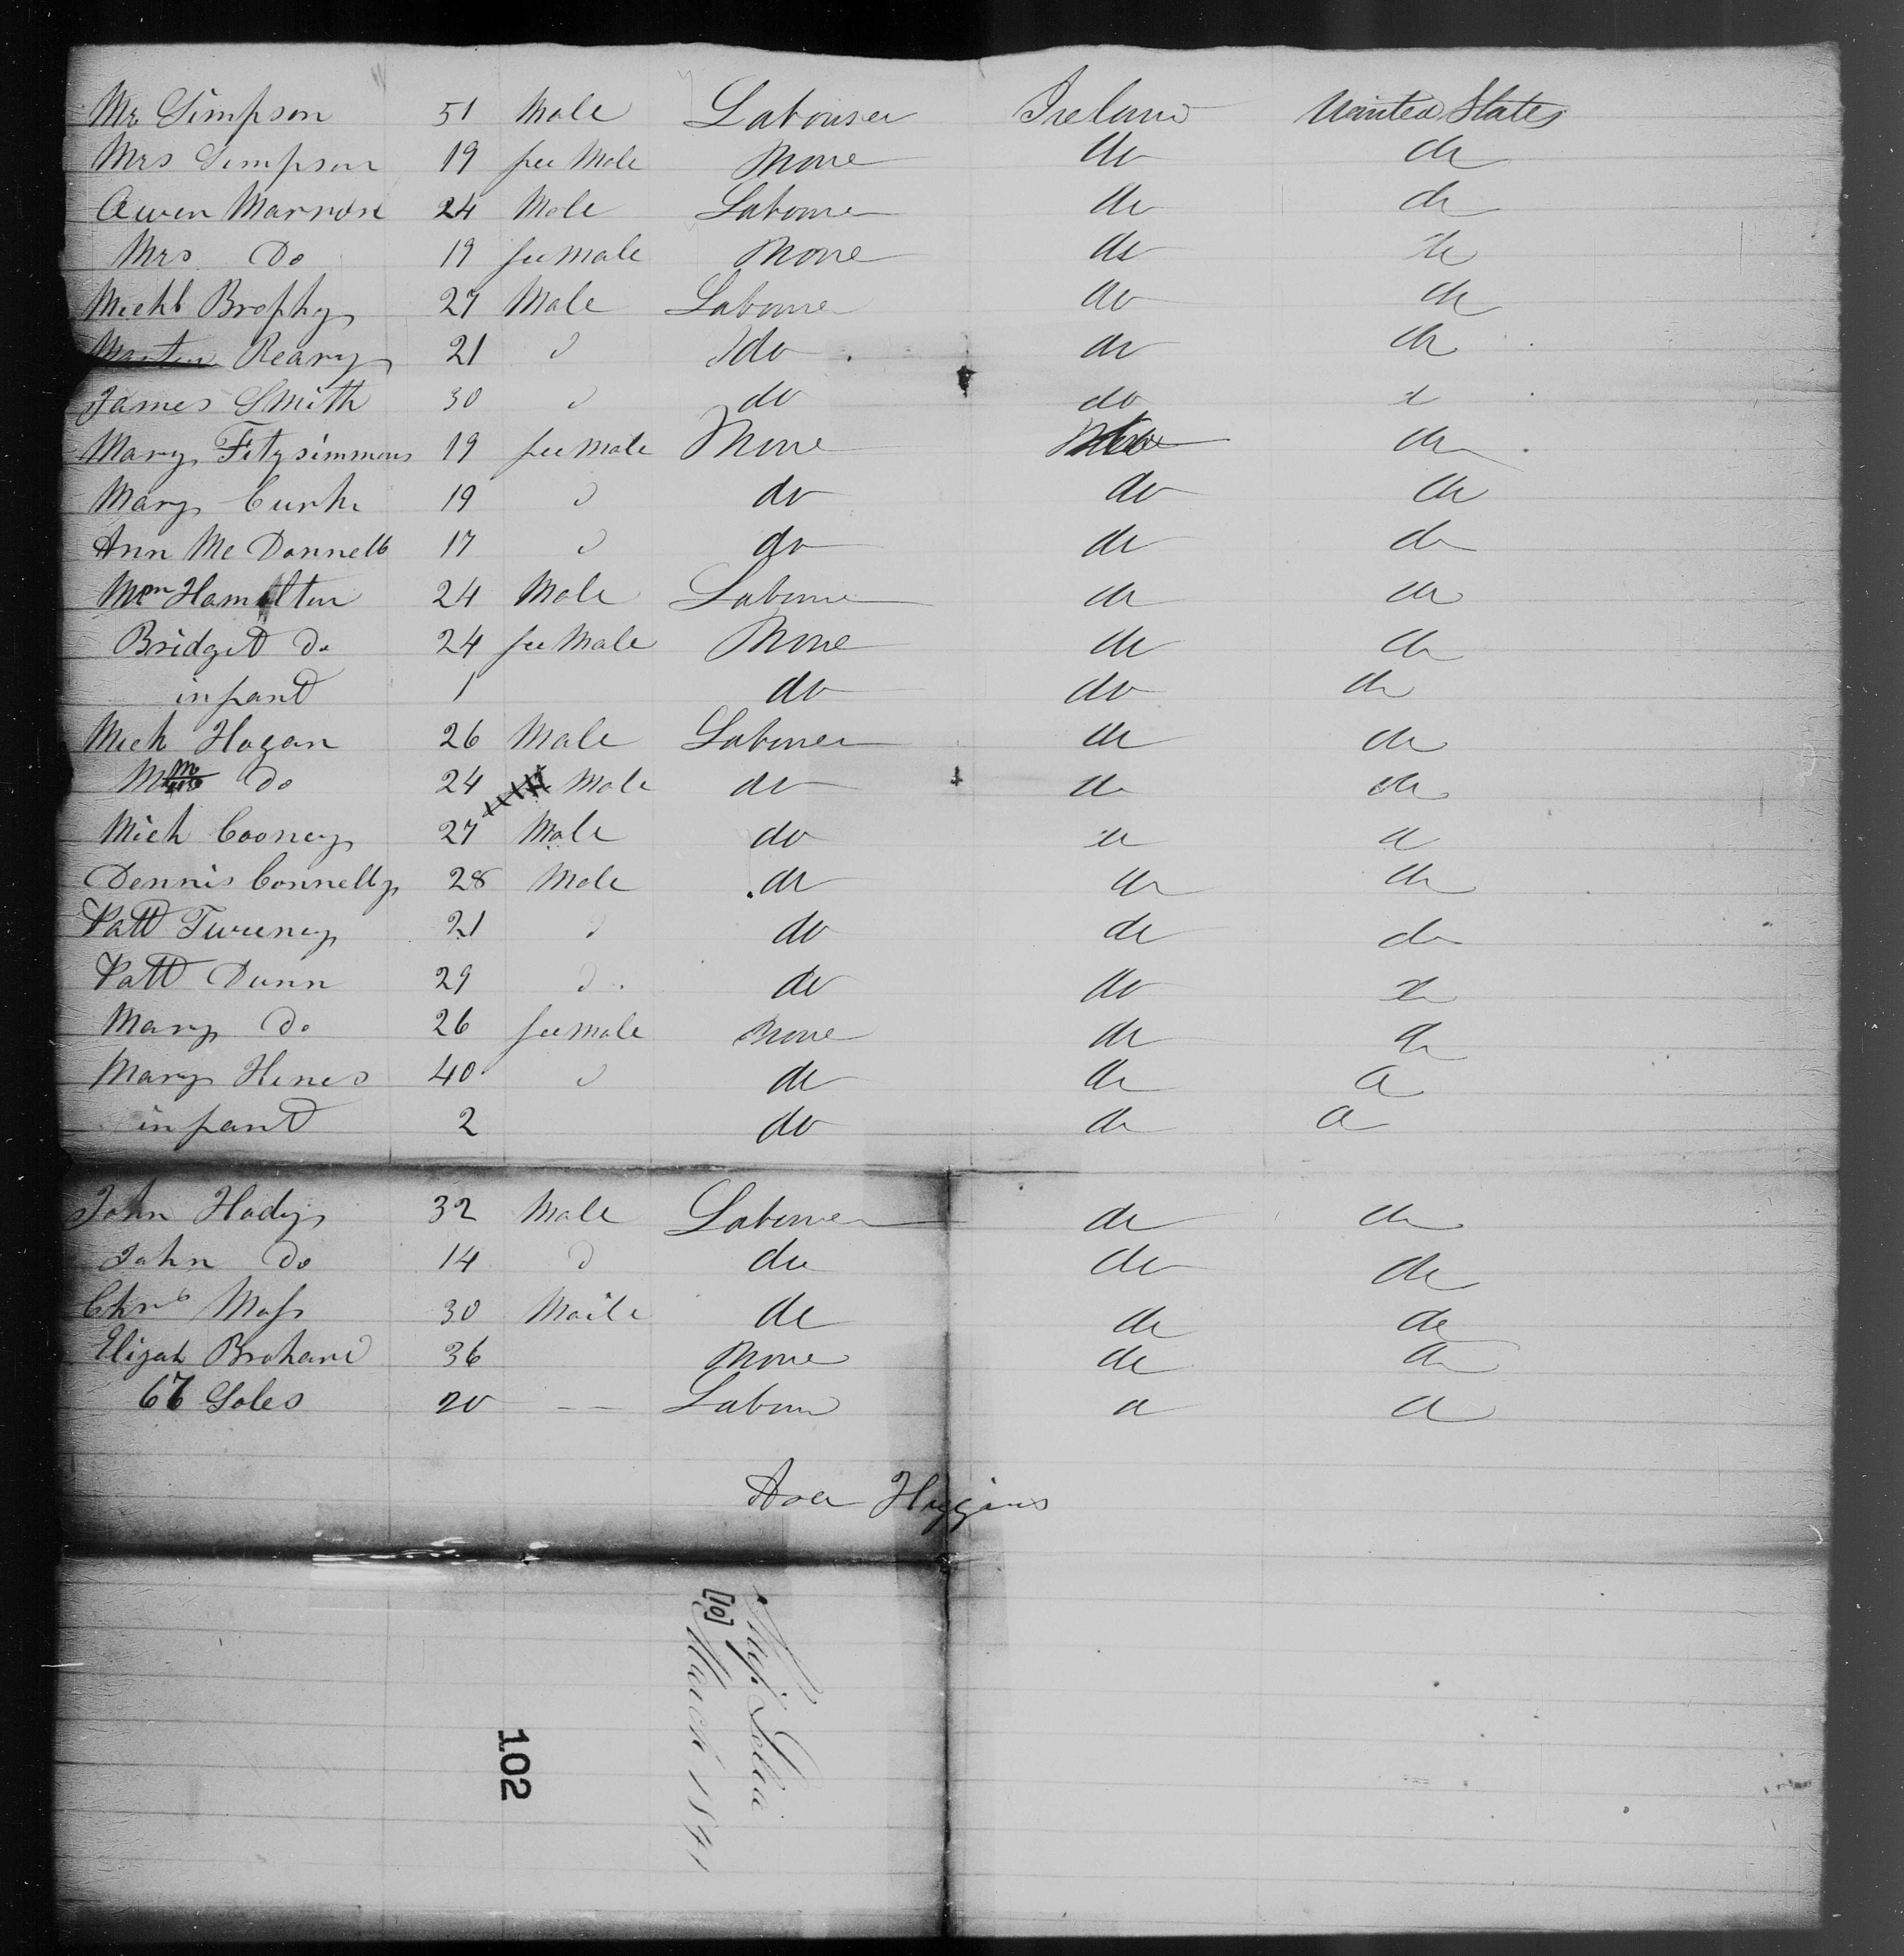 Mr Simpson 51 Male Labourer Ireland United States
Mrs Simpson 19 fee Male None do do
Owen 24 Male Labourer do do
Mrs Do 19 feemale None do do
Michl Brophy 27 Male Labourer do do
Reary 21 do do do
James Smith 30 do do do
Mary Fitzsimmons 19 feemale None do
Mary 19 do do do
Ann Mc Donnell 17 do do do
Wm Hamilton 24 Male Labourer do do
Bridget Do 24 feemale None do do
infant 1 do do do
Mich Hogan 26 Male Labourer do do
Do 24 Male do do do
Mich Cooney 27 Male do do do
Dennis Connelly 28 Male do do do
Patt 21 do do do
Patt Dunn 29 do do do
Mary Do 26 feemale None do do
Mary Hines 40 do do do
infant 2 do do do
John Hady 32 Male Labourer do do
John Do 14 do do do
Moss 30 Maile do do do
Elizah 36 None do do
Soles 20 — — Labour do do
Asa Higgins
Ship
[10] March 1841
102